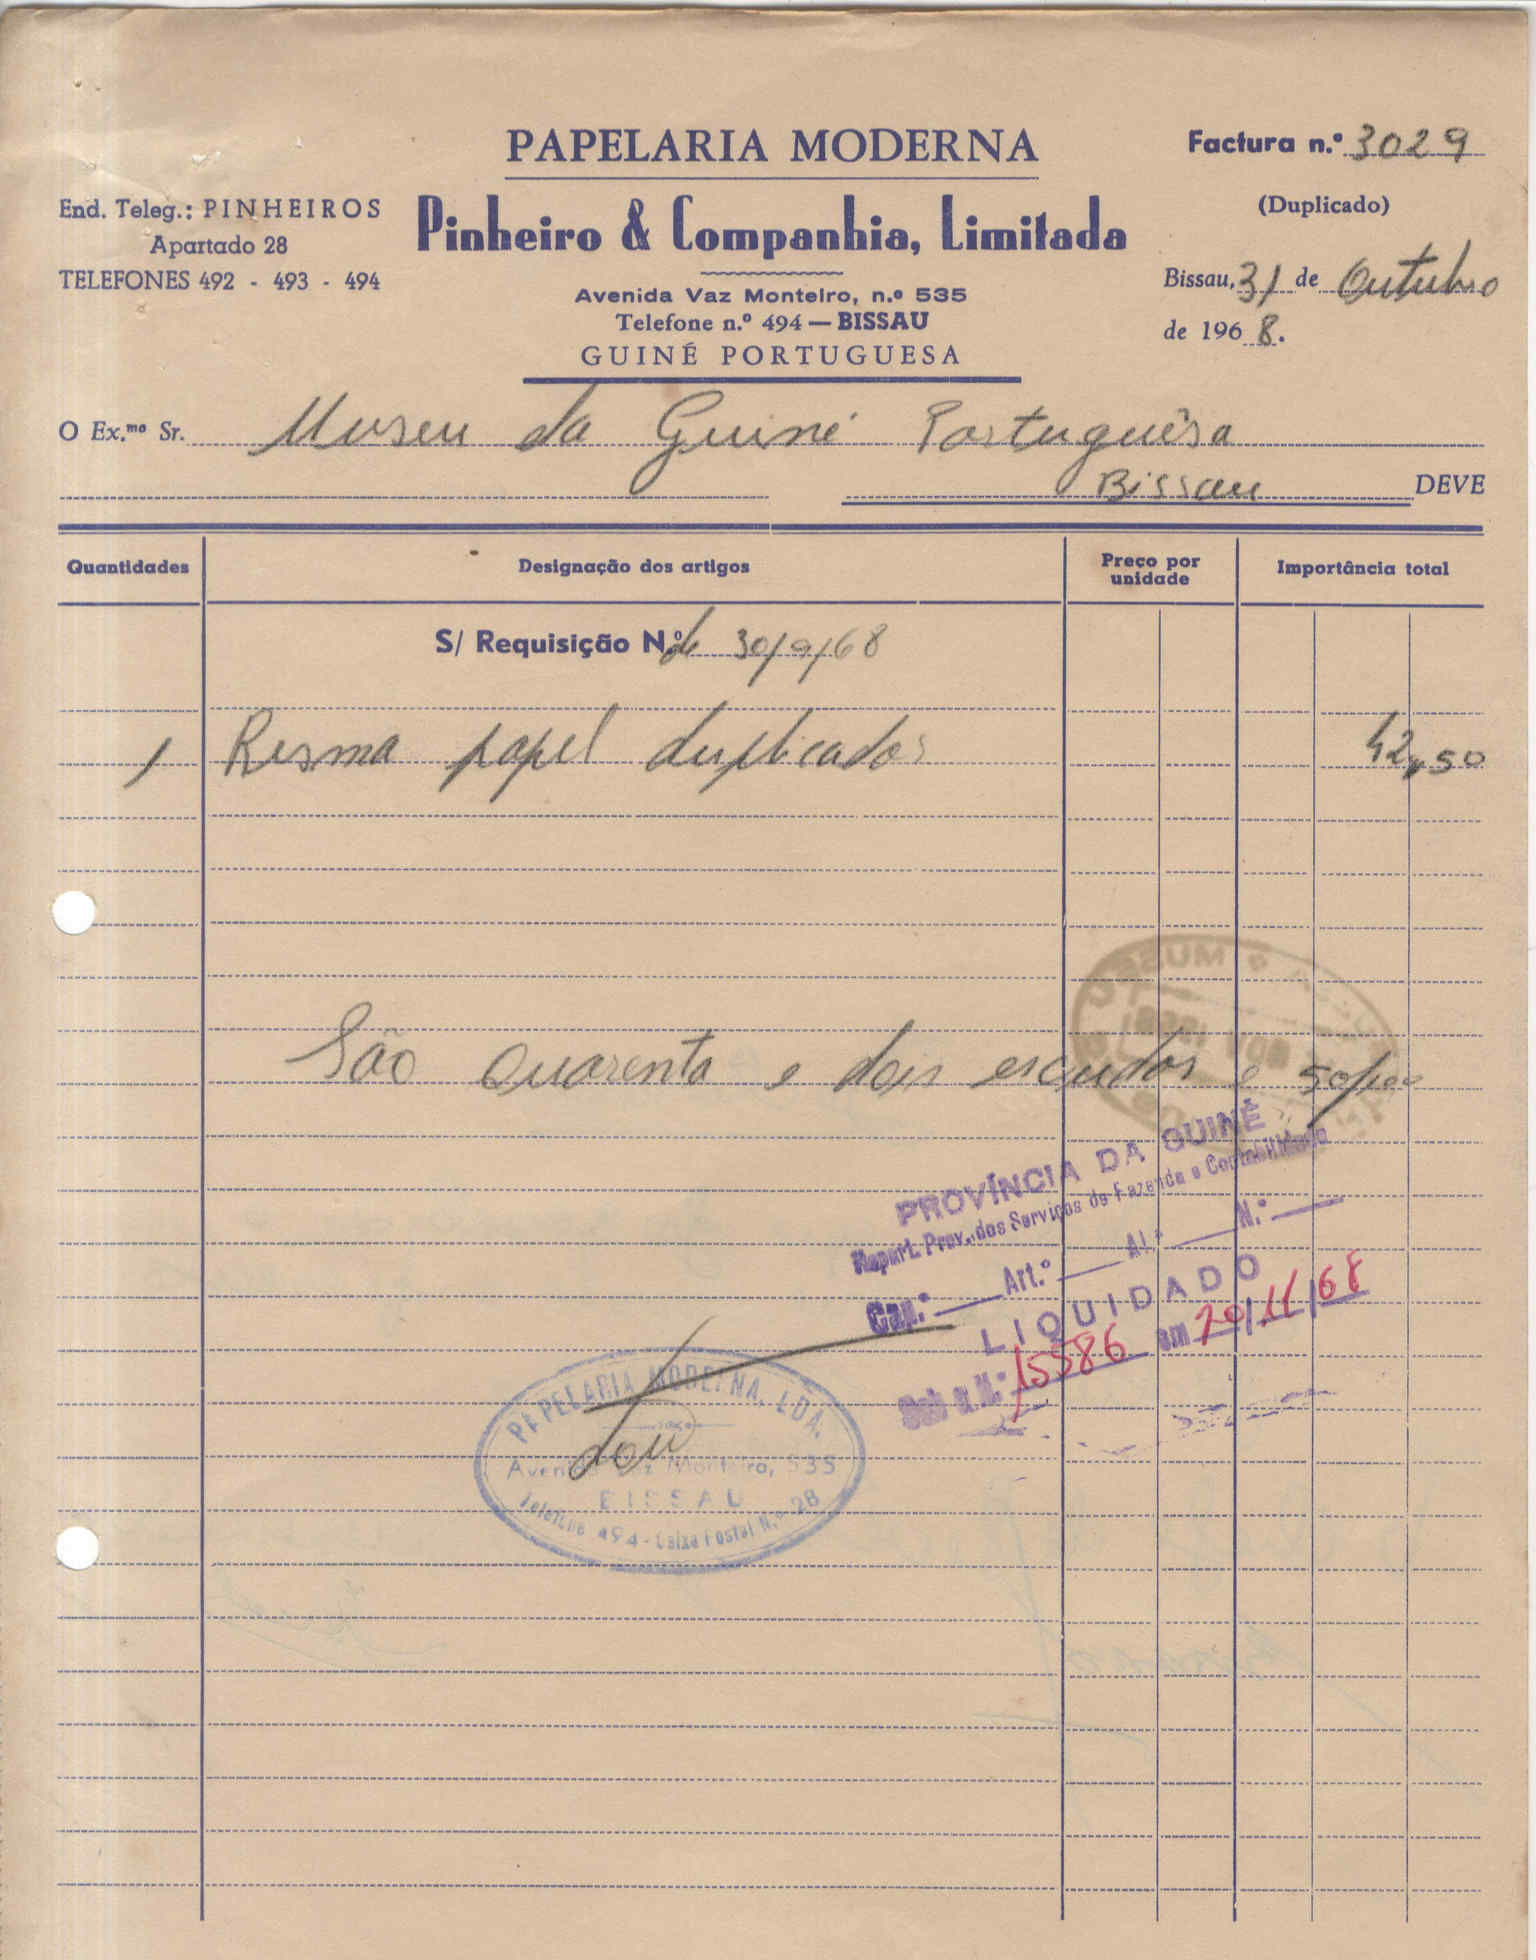 PAPELARIA MODERNA
Factura n.º 3029
(Duplicado)
End. Teleg.: PINHEIROS
Apartado 28
TELEFONES 492 - 493 - 494
Pinheiro & Companhia, Limitada
Avenida Vaz Monteiro, n.º 535
Telefone n.º 494 — BISSAU
GUINÉ PORTUGUESA
Bissau, 31 de Outubro
de 1968.
O Ex.mo Sr. Museu da Guiné Portuguêsa
Bissau DEVE
Quantidades Designação dos artigos Preço por unidade Importância total
S/ Requisição N.º de 30/9/68
1 Resma papel duplicador 42,50
São quarenta e dois escudos e 50/100
PROVÍNCIA DA GUINÉ
Repart. Prov. dos Serviços de Fazenda e Contabilidade
Cap.º Art.º Al.ª N.º
LIQUIDADO
Sob o N.º 15586 em 20/11/68
PAPELARIA MODERNA, LDA.
Avenida Vaz Monteiro, 535
BISSAU
Telefone 494 - Caixa Postal N.º 28